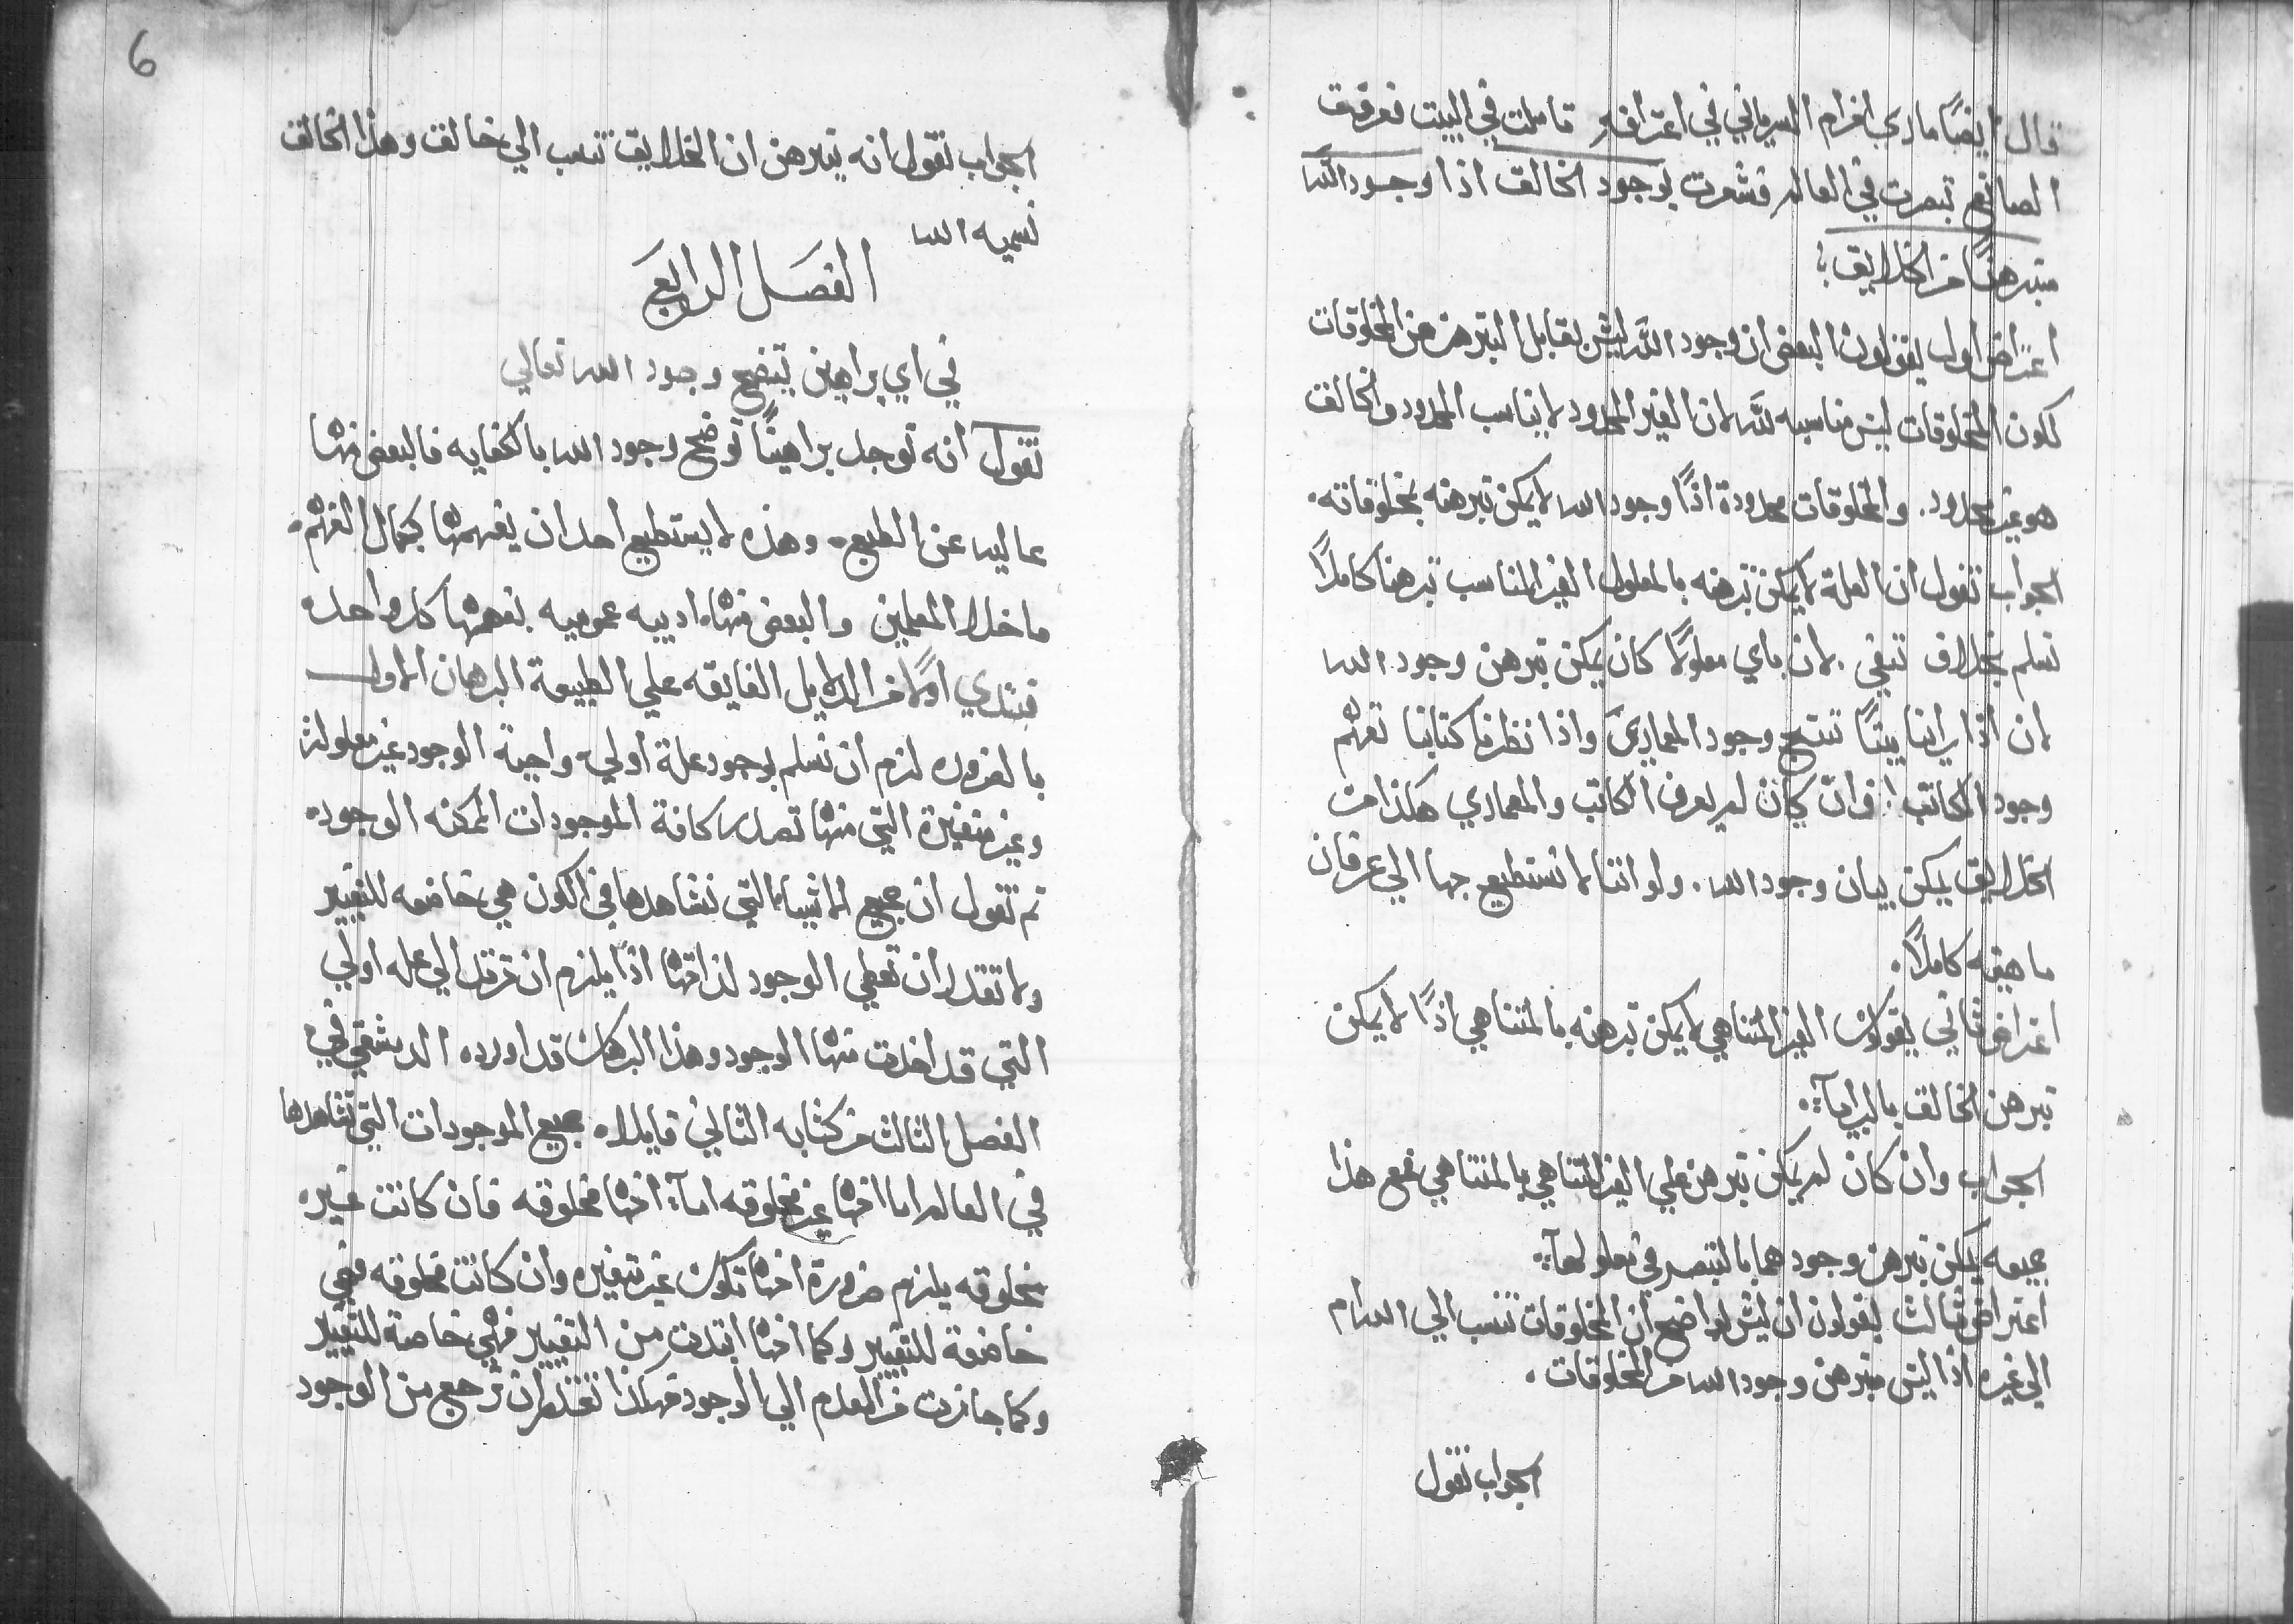 قال ايضًا ماري افرام السرياني في اعترافه تاملت في البيت فعرفت
الصانع تبصرت في العالم فشعرت بوجود الخالق اذا وجود الله
متبرهنًا من الخلايق
اعتراض اول يقولون البعض ان وجود الله ليس بقابل التبرهن من المخلوقات
لكون المخلوقات ليس مناسبه لله لان الغير المحدود لا يناسب المحدود والخالق
هو غير محدود. والمخلوقات محدودة اذًا وجود الله لا يمكن تبرهنه بمخلوقاته.
الجواب نقول ان العلة لا يمكن تبرهنه بالمعلول الغير المناسب تبرهنا كاملًا
نسلم بخلاف ننفي. لان باي معلولًا كان يمكن تبرهن وجود الله
لان اذا راينا بيتًا ننتج وجود المعماري واذا نظرنا كتابنا نفهم
وجود الكاتب. وان كان لم يعرف الكاتب والمعماري هكذا من
الخلايق يمكن بيان وجود الله. ولو اننا لا نستطيع بها الي عرفان
ماهيته كاملًا.
اعتراض ثاني يقولون الغير المتناهي لا يمكن تبرهنه بالمتناهي اذًا لا يمكن
تبرهن الخالق بالبرايا
الجواب وان كان لم يمكن تبرهن علي الغير المتناهي بالمتناهي فمع هذا
جميعه يمكن تبرهن وجودهما بالتبصر في معلولها
اعتراض ثالث يقولون ان ليس بواضح ان المخلوقات تنسب الي الله ام
الي غيره اذا ليس متبرهن وجود الله من المخلوقات.
الجواب نقول
6
الجواب نقول انه تبرهن ان الخلايق تنسب الي خالق وهذا الخالق
نسميه الله
الفصل الرابع
في اي براهين يتضح وجود الله تعالي
نقول انه توجد براهينًا توضح وجود الله بالكفايه فالبعض منها
عاليه عن الطبع. وهذه لا يستطيع احد ان يفهمها بكمال الفهم.
ما خلا المعلمين والبعض منها ادبيه عموميه يفهمها كل واحد.
فنبتدي اولًا من الدلايل الفايقه علي الطبيعة البرهان الاول
بالضروره لزم ان نسلم بوجود علة اولي واجبة الوجود غير معلولة
وغير متغيرة التي منها تصدر كافة الموجودات الممكنه الوجود.
ثم نقول ان جميع الاشيا التي نشاهدها في الكون هي خاضعه للتغيير
ولا تقدر ان تعطي الوجود لذاتها اذًا يلزم ان ترتد الي عله اولي
التي قد اخذت منها الوجود وهذا البرهان قد اورده الدمشقي في
الفصل الثالث من كتابه الثاني قايلا. جميع الموجودات التي نشاهدها
في العالم اما انها غير مخلوقه اما انها مخلوقه فان كانت غير
مخلوقه يلزم ضرورة انها تكون غير متغيره وان كانت مخلوقه فهي
خاضعة للتغيير وكما انها ابتدت من التغيير فهي خاضعة للتغيير
وكما جازت من العدم الي الوجود فهكذا تقدر ان ترجع من الوجود